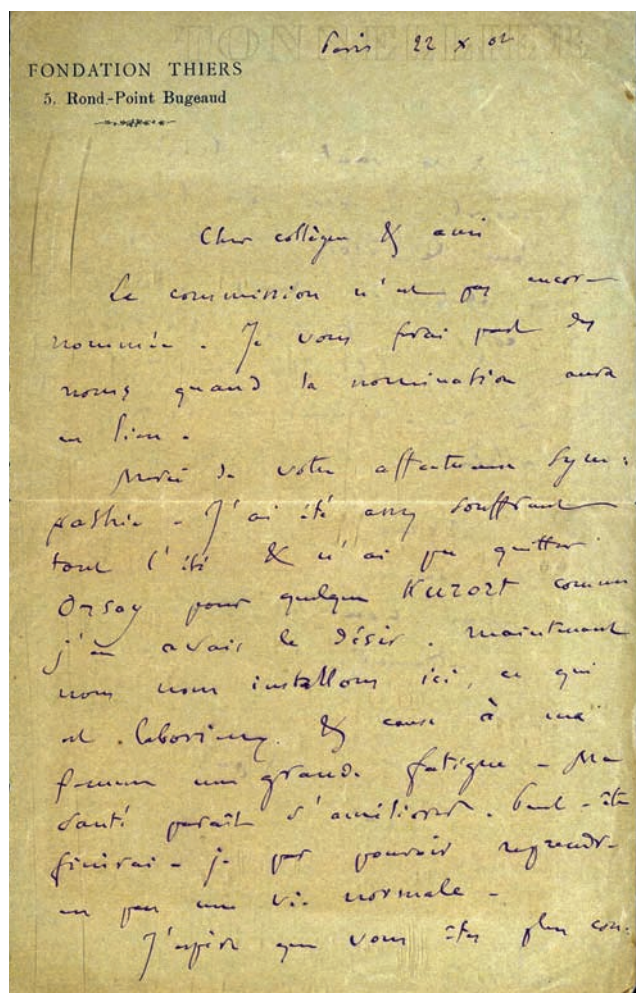 Paris 22 X 02
FONDATION THIERS
5. Rond-Point Bugeaud
Cher collègue & ami
La commission n'est pas encore
nommée. Je vous ferai part des
noms quand la nomination aura
eu lieu.
Merci de votre affectueuse sym-
pathie - J'ai été assez souffrant
tout l'été & n'ai pu quitter
Orsay pour quelque Kurort comme
j'en avais le désir. Maintenant
nous nous installons ici, ce qui
est laborieux & cause à ma
femme une grande fatigue - Ma
santé paraît s'améliorer. Peut-être
finirai-je par pouvoir reprendre
un peu une vie normale -
J'espère que vous êtes plus con-